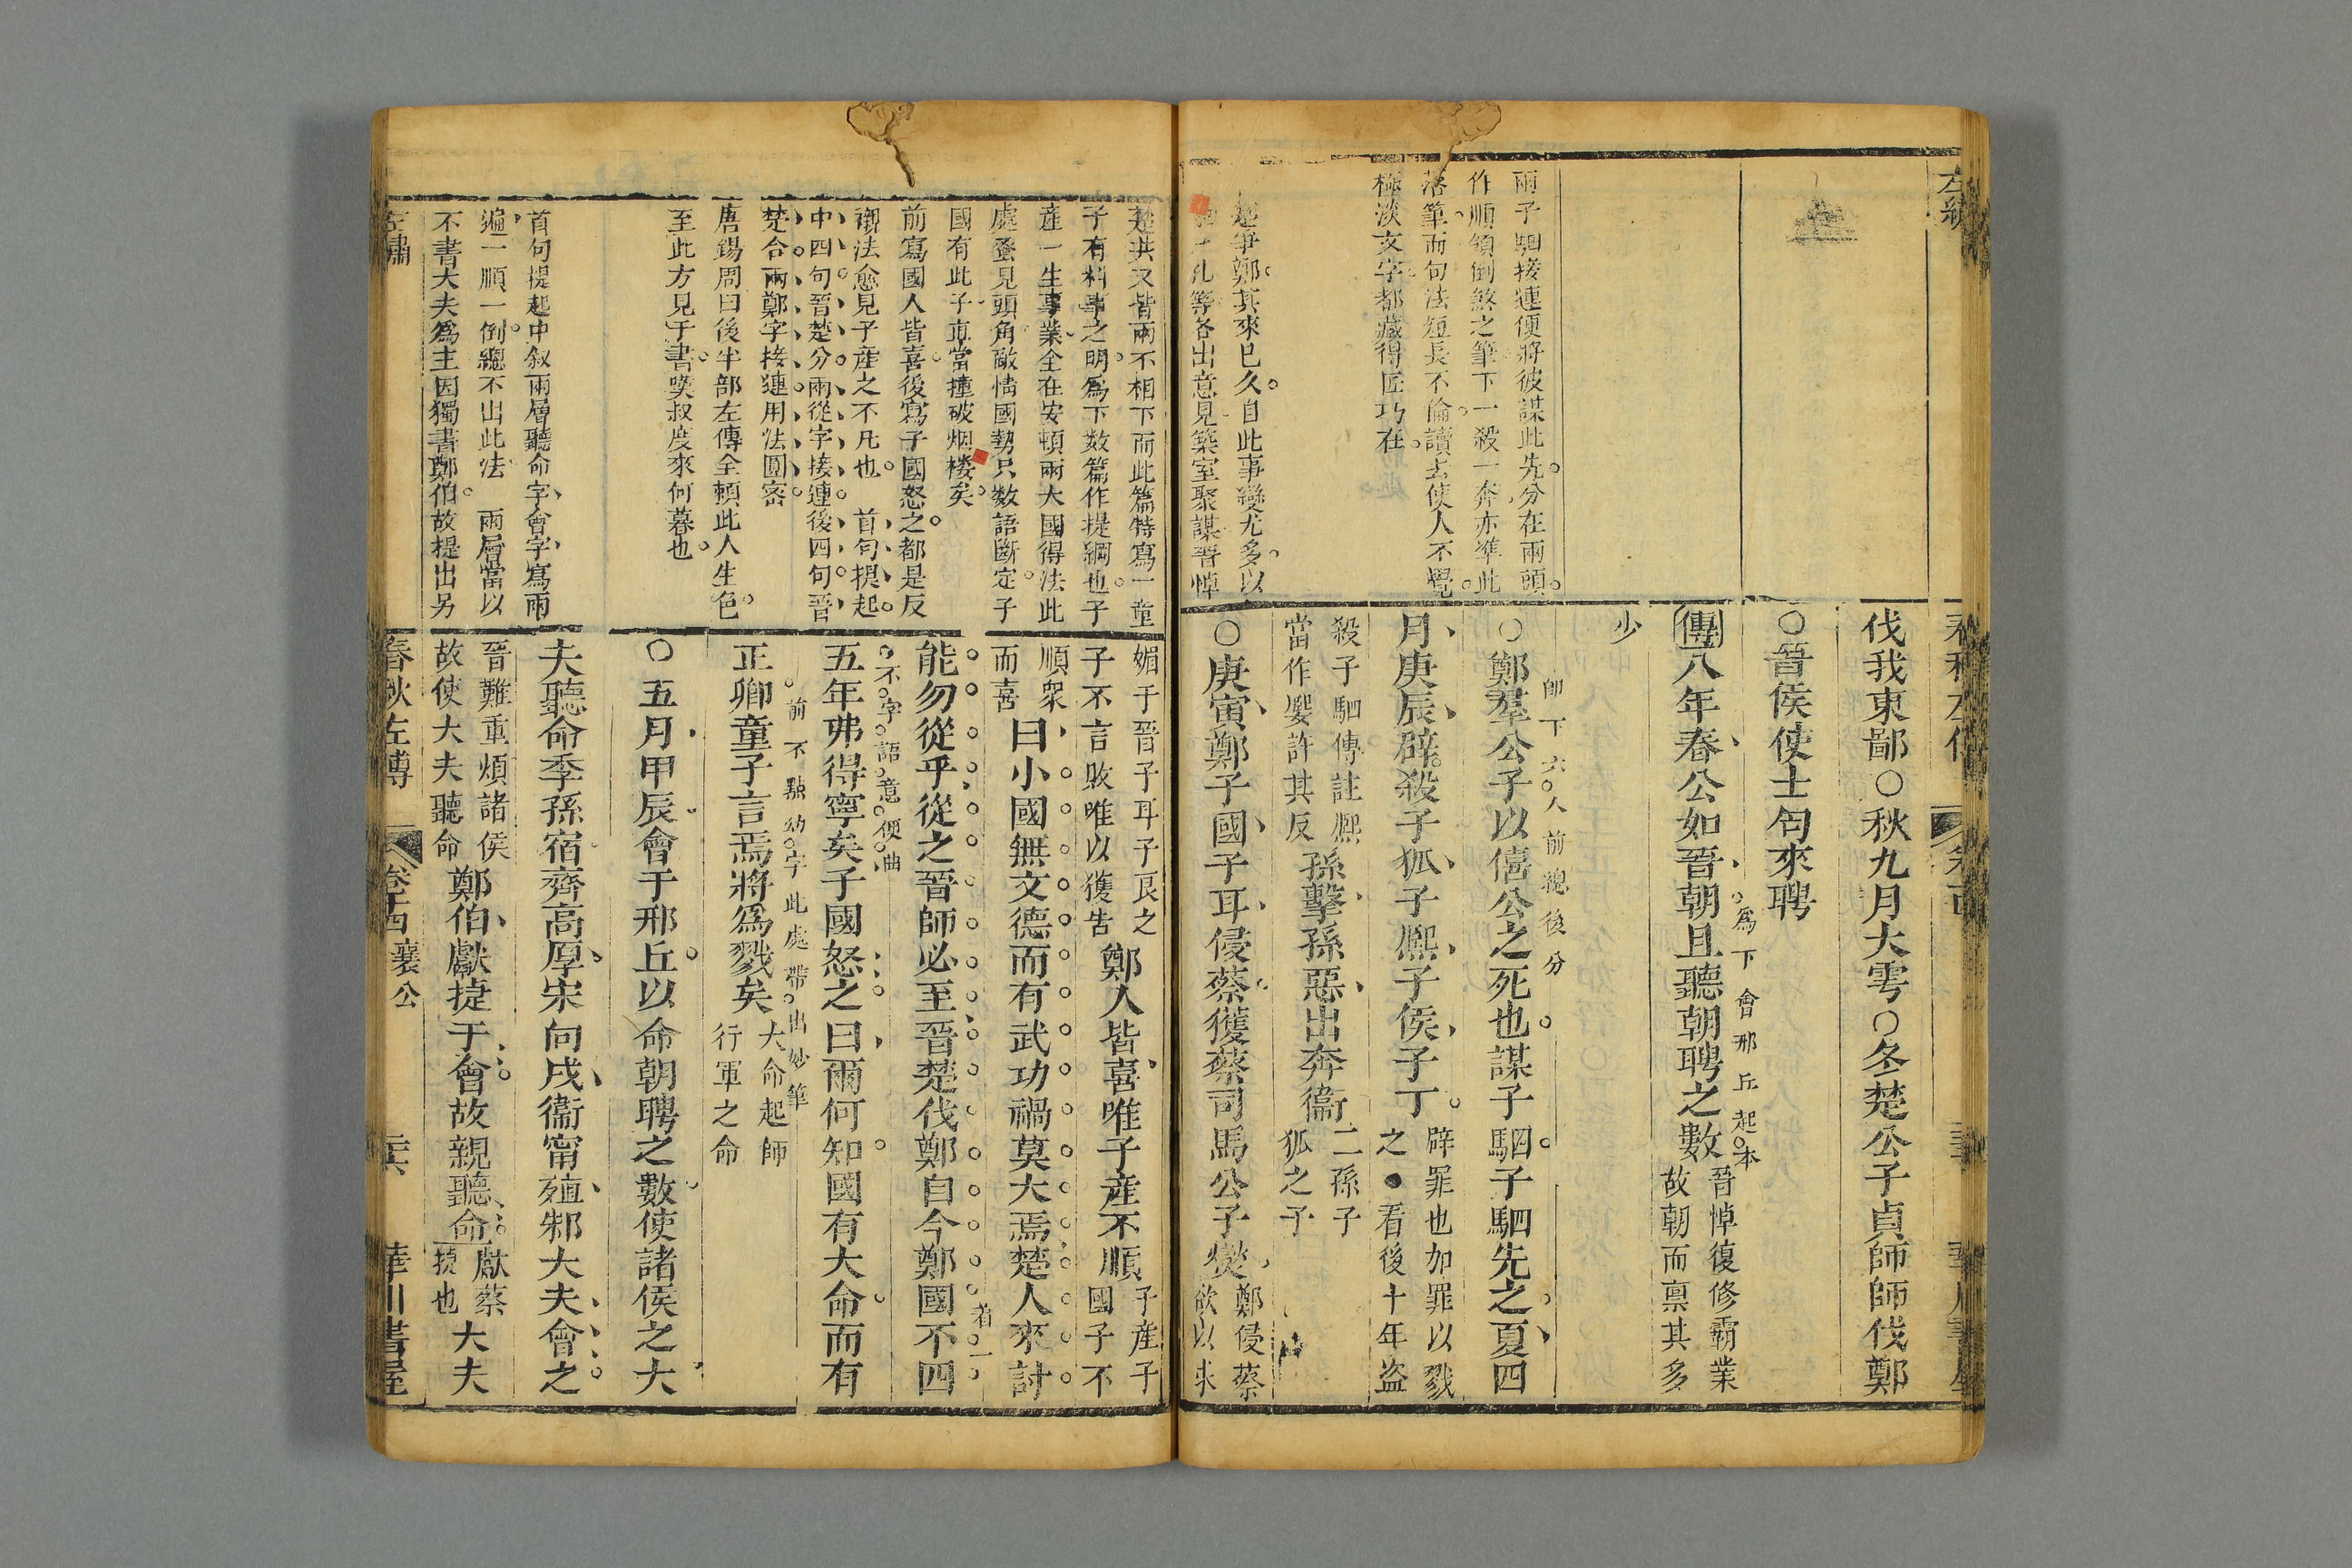 伐我東鄙○秋九月大雩○冬楚公子貞師師伐鄭
○晉侯使士匄來聘
傳八年春公如晉朝且聽朝聘之數
爲下會邢丘起本
晉悼復修霸業
故朝而禀其多
少
卽下六人前總後分
○鄭羣公子以僖公之死也謀子駟子駟先之夏四
月庚辰辟殺子狐子熈子侯子丁
辟罪也加罪以戮
之●看後十年盜
殺子駟傳註熈
當作嬰許其反
孫擊孫惡出奔衞
二孫子
狐之子
○庚寅鄭子國子耳侵蔡獲蔡司馬公子燮
鄭侵蔡
欲以求
兩子駟接連便將彼謀此先分在兩頭
作順領倒煞之筆下一殺一奔亦準此
落筆而句法短長不倫讀去使人不覺
極淡文字都藏得匠巧在
楚爭鄭其來已久自此事變尤多以
等各出意見築室聚謀晉悼
媚于晉子耳子良之
子不言敗唯以獲告
鄭人皆喜唯子產不順
子產子
國子不
順衆
而喜
曰小國無文德而有武功禍莫大焉楚人來討
能勿從乎從之晉師必至晉楚伐鄭自今鄭國不四
着一
不字語意便曲
五年弗得寧矣子國怒之曰爾何知國有大命而有
前不點幼字此處帶出妙筆
正卿童子言焉將爲戮矣
大命起師
行軍之命
○五月甲辰會于邢丘以命朝聘之數使諸侯之大
夫聽命季孫宿齊高厚宋向戌衞甯殖邾大夫會之
晉難重煩諸侯
故使大夫聽命
鄭伯獻捷于會故親聽命
獻蔡
捷也
大夫
楚共又皆兩不相下而此篇特寫一童
子有料事之明爲下数篇作提綱也子
產一生事業全在安頓兩大國得法此
處蚤見頭角敵情國勢只数語斷定子
國有此子直當撞破烟楼矣
前寫國人皆喜後寫子國怒之都是反
襯法愈見子產之不凡也 首句提起
中四句晉楚分兩從字接連後四句晉
楚合兩鄭字接連用法圓密
唐錫周曰後半部左傳全頼此人生色
至此方見于書唉叔度來何暮也
首句提起中叙兩層聽命字會字寫兩
遍一順一倒總不出此法 兩層當以
不書大夫爲主因獨書鄭伯故提出另
左繡
春秋左傳
卷十四 襄公
華川書屋